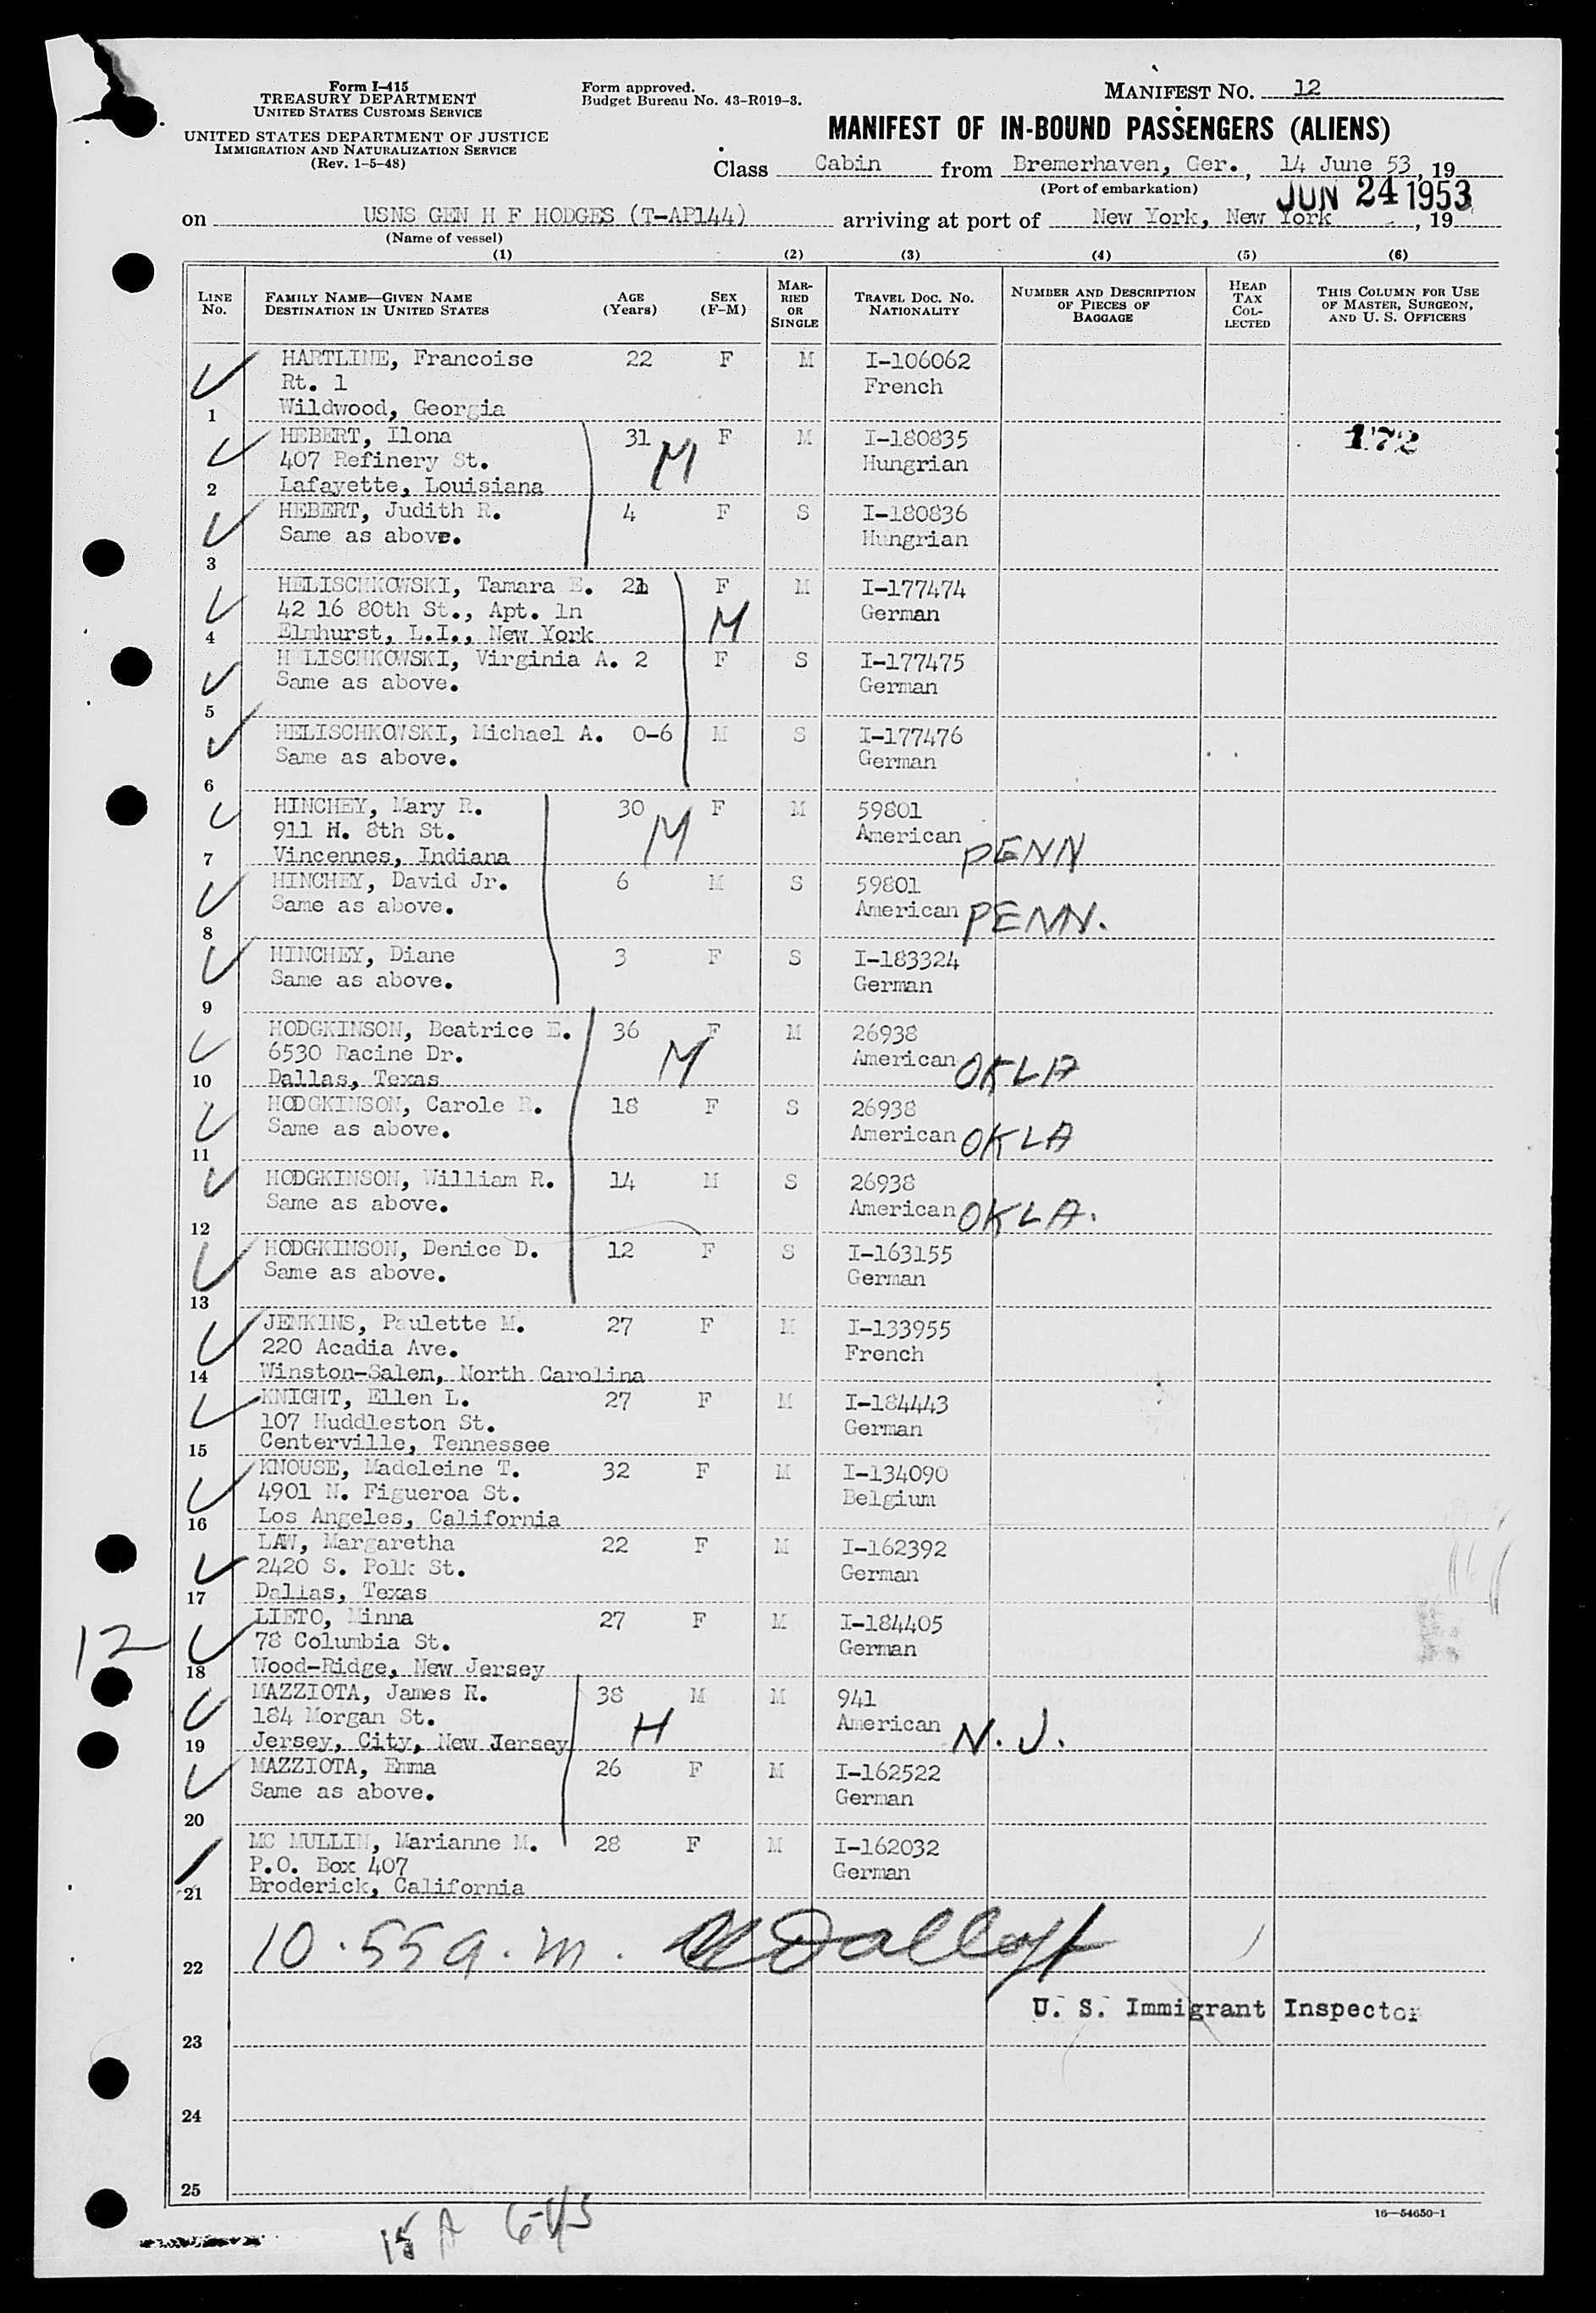 Form I-415
TREASURY DEPARTMENT
UNITED STATES CUSTOMS SERVICE
UNITED STATES DEPARTMENT OF JUSTICE
IMMIGRATION AND NATURALIZATION SERVICE
(Rev. 1-5-48)
Form approved.
Budget Bureau No. 43-R019-3.
MANIFEST NO. 12
MANIFEST OF IN-BOUND PASSENGERS (ALIENS)
Class Cabin from Bremerhaven, Ger., 14 June 53, 19
(Port of embarkation)
JUN 24 1953
on USNS GEN H F HODGES (T-AP144) arriving at port of New York, New York, 19
(Name of vessel)
(1) (2) (3) (4) (5) (6)
LINE NO. FAMILY NAME—GIVEN NAME DESTINATION IN UNITED STATES AGE (Years) SEX (F-M) MARRIED OR SINGLE TRAVEL DOC. NO. NATIONALITY NUMBER AND DESCRIPTION OF PIECES OF BAGGAGE HEAD TAX COLLECTED THIS COLUMN FOR USE OF MASTER, SURGEON, AND U. S. OFFICERS
HARTLINE, Francoise 22 F M I-106062
Rt. 1 French
1 Wildwood, Georgia
HEBERT, Ilona 31 M F M I-180835 172
407 Refinery St. Hungrian
2 Lafayette, Louisiana
HEBERT, Judith R. 4 F S I-180836
Same as above. Hungrian
3
HELISCHKOWSKI, Tamara E. 21 F M I-177474
42 16 80th St., Apt. 1n M German
4 Elmhurst, L.I., New York
H LISCHKOWSKI, Virginia A. 2 F S I-177475
Same as above. German
5
HELISCHKOWSKI, Michael A. 0-6 M S I-177476
Same as above. German
6
HINCHEY, Mary R. 30 M F M 59801
911 H. 8th St. American PENN
7 Vincennes, Indiana
HINCHEY, David Jr. 6 M S 59801
Same as above. American PENN.
8
HINCHEY, Diane 3 F S I-183324
Same as above. German
9
HODGKINSON, Beatrice E. 36 F M 26938
6530 Racine Dr. M American OKLA
10 Dallas, Texas
HODGKINSON, Carole R. 18 F S 26938
Same as above. American OKLA
11
HODGKINSON, William R. 14 M S 26938
Same as above. American OKLA.
12
HODGKINSON, Denice D. 12 F S I-163155
Same as above. German
13
JENKINS, Paulette M. 27 F M I-133955
220 Acadia Ave. French
14 Winston-Salem, North Carolina
KNIGHT, Ellen L. 27 F M I-184443
107 Huddleston St. German
15 Centerville, Tennessee
KNOUSE, Madeleine T. 32 F M I-134090
4901 N. Figueroa St. Belgium
16 Los Angeles, California
LAW, Margaretha 22 F M I-162392
2420 S. Polk St. German
17 Dallas, Texas
LIETO, Minna 27 F M I-184405
12 78 Columbia St. German
18 Wood-Ridge, New Jersey
MAZZIOTA, James R. 38 M M 941
184 Morgan St. H American N. J.
19 Jersey, City, New Jersey
MAZZIOTA, Emma 26 F M I-162522
Same as above. German
20
MC MULLIN, Marianne M. 28 F M I-162032
P.O. Box 407 German
21 Broderick, California
10.55 a.m.
22
U. S. Immigrant Inspector
23
24
25
16—54650-1
15 A 6-45